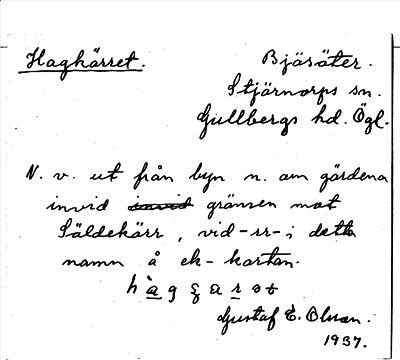 Hagkärret. Bjäsäter.
Stjärnorps sn.
Gullbergs hd. Ögl.
N. v. ut från byn n. om gärdena
invid invid gränsen mot
Säldekärr, vid -rr- i detta
namn å ek-kartan.
Gustaf E. Olsson.
1937.